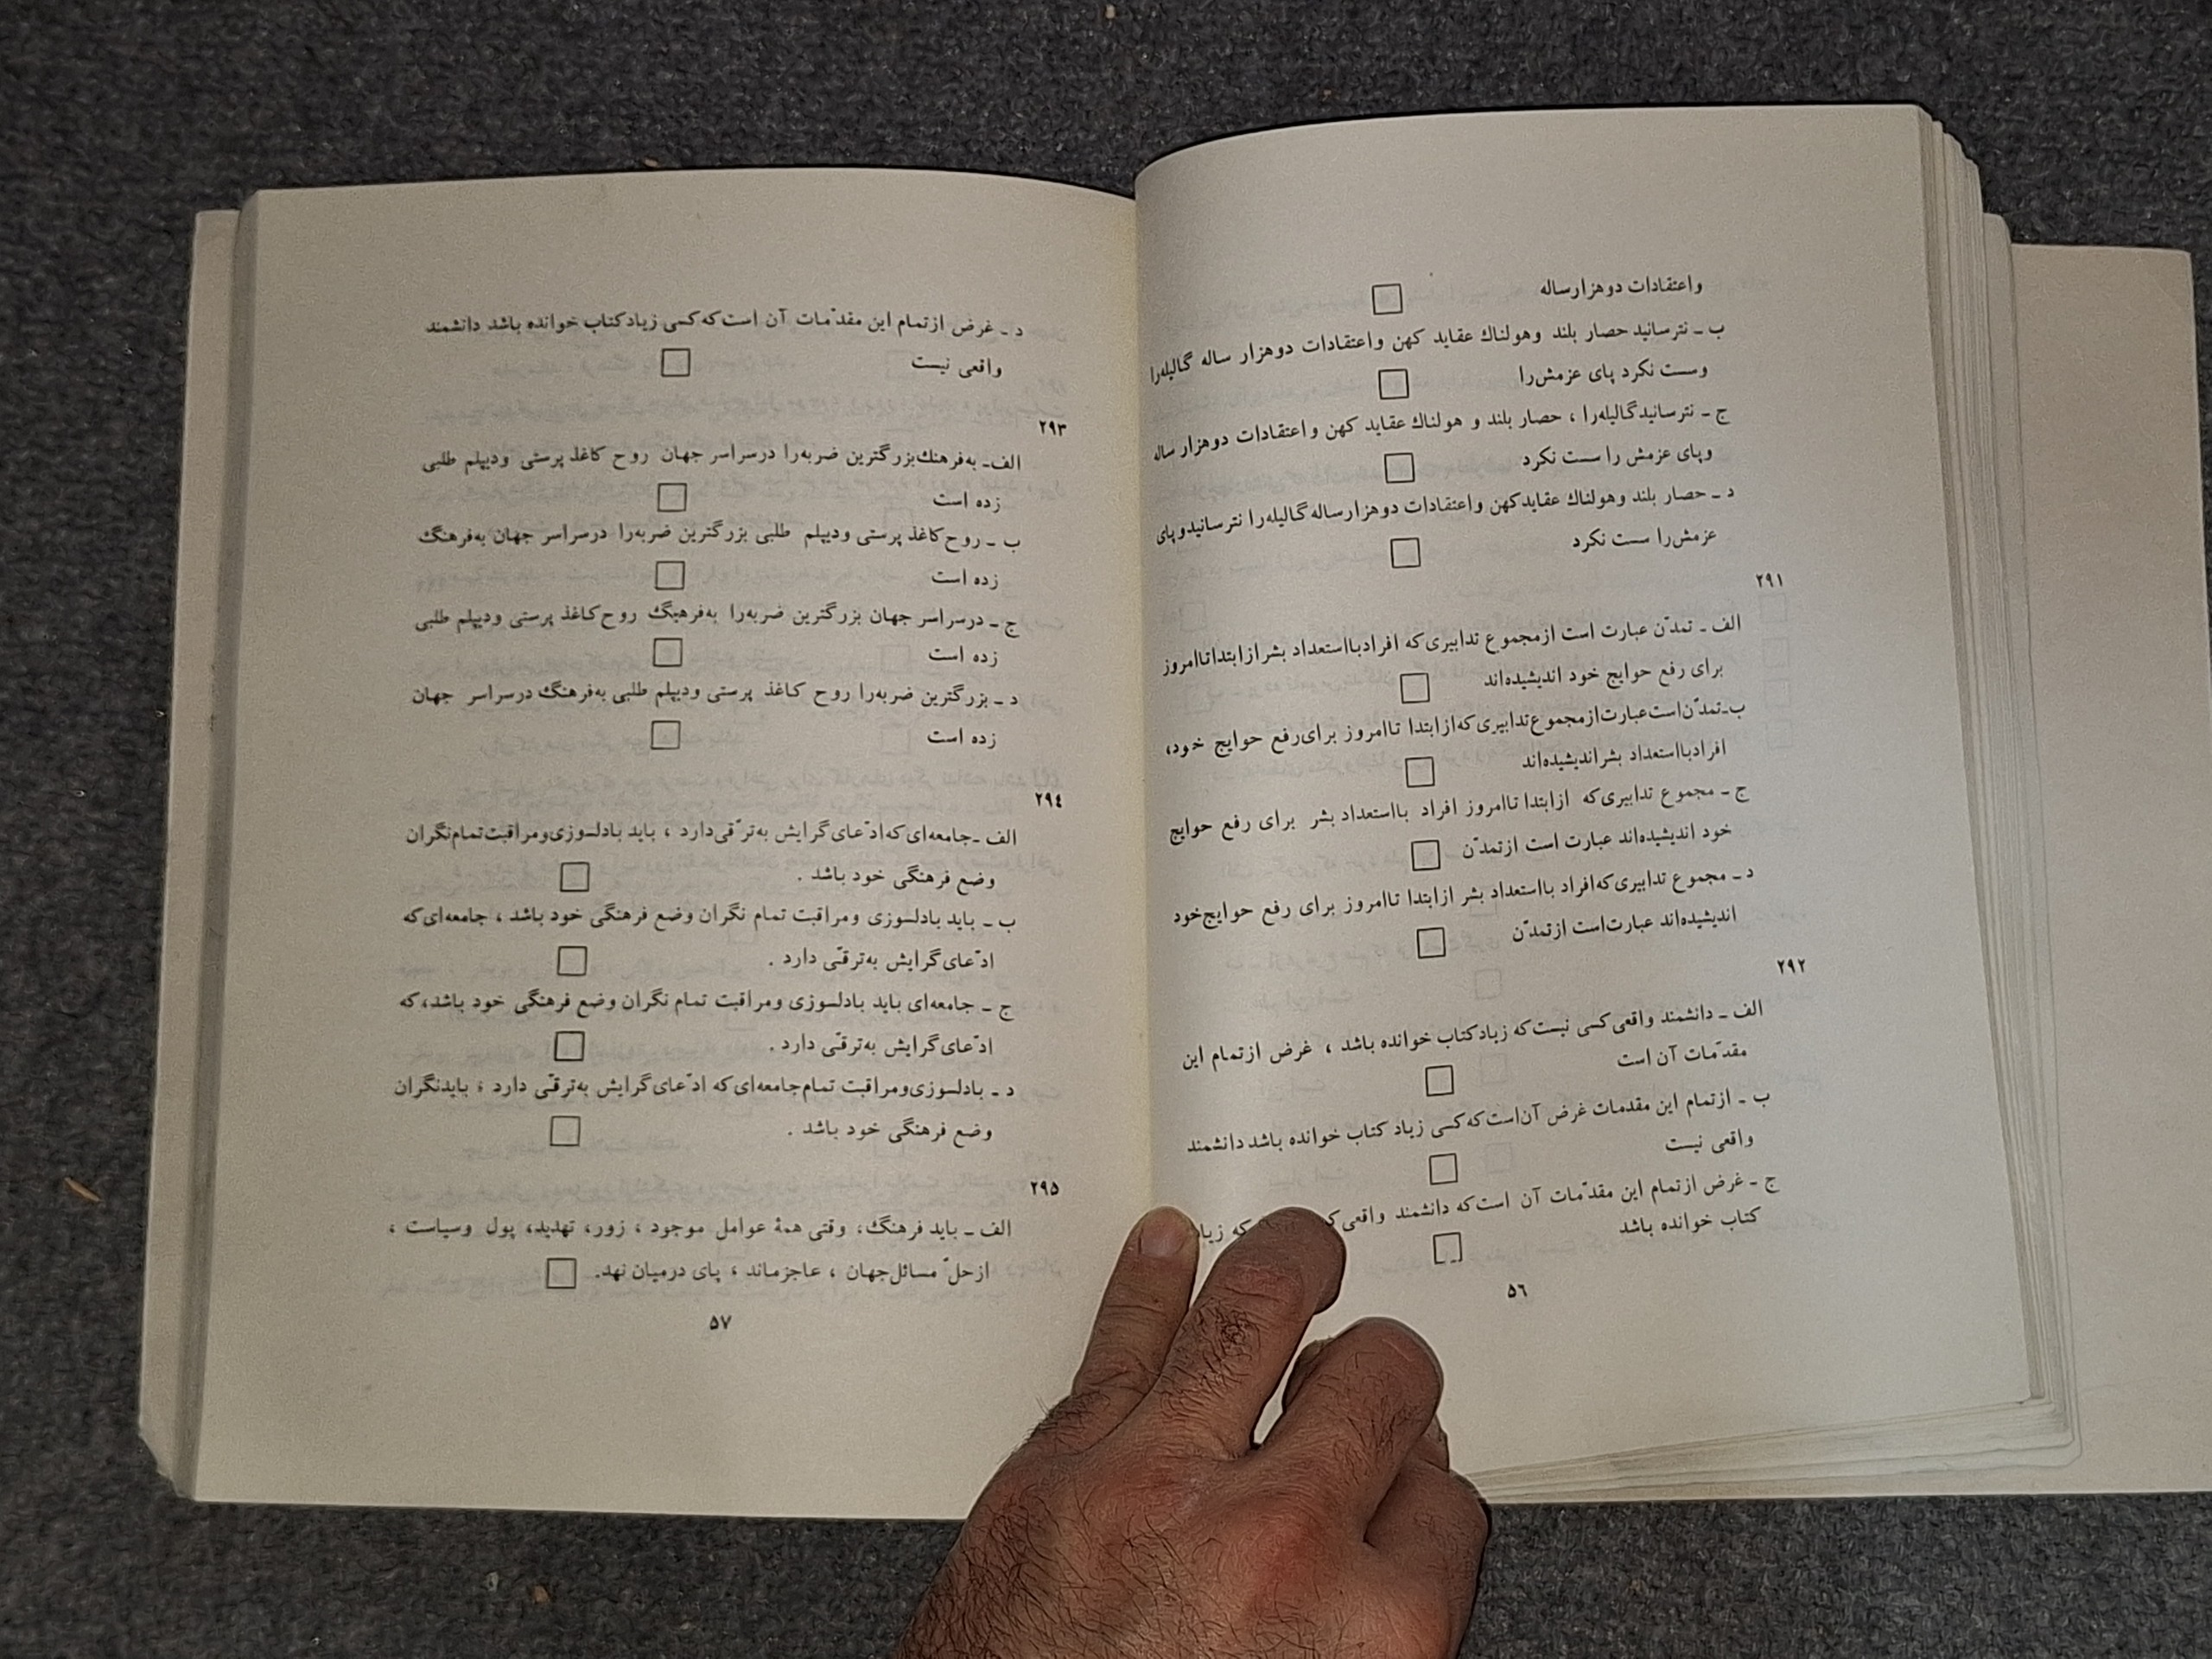 واعتقادات دوهزارساله
ب ـ نترسانید حصار بلند وهولناك عقاید کهن واعتقادات دوهزار ساله گالیله‌را
وسست نکرد پای عزمش‌را
ج ـ نترسانیدگالیله‌را ، حصار بلند و هولناك عقاید کهن واعتقادات دوهزار ساله
وپای عزمش را سست نکرد
د ـ حصار بلند وهولناك عقایدکهن واعتقادات دوهزارساله‌گالیله‌را نترسانیدوپای
عزمش‌را سست نکرد
۲۹۱
الف ـ تمدّن عبارت است ازمجموع تدابیری‌که افرادبااستعداد بشرازابتداتاامروز
برای رفع حوایج خود اندیشیده‌اند
ب‌ـ‌تمدّن‌است‌عبارت‌ازمجموع‌تدابیری‌که‌ازابتدا تاامروز برای‌رفع حوایج خود،
افرادبااستعداد بشراندیشیده‌اند
ج ـ مجموع تدابیری‌که ازابتدا تاامروز افراد بااستعداد بشر برای رفع حوایج
خود اندیشیده‌اند عبارت است ازتمدّن
د ـ مجموع تدابیری‌که‌افراد بااستعداد بشر ازابتدا تاامروز برای رفع حوایج‌خود
اندیشیده‌اند عبارت‌است ازتمدّن
۲۹۲
الف ـ دانشمند واقعی‌کسی نیست‌که زیادکتاب خوانده باشد ، غرض ازتمام این
مقدّمات آن است
ب ـ ازتمام این مقدمات غرض آن‌است‌که‌کسی زیاد کتاب خوانده باشد دانشمند
واقعی نیست
ج ـ غرض ازتمام این مقدّمات آن است‌که دانشمند واقعی که
کتاب خوانده باشد
۵۶
د ـ غرض ازتمام این مقدّمات آن است‌که‌کسی زیادکتاب خوانده باشد دانشمند
واقعی نیست
۲۹۳
الف‌ـ به‌فرهنك‌بزرگترین ضربه‌را درسراسر جهان روح کاغذ پرستی ودیپلم طلبی
زده است
ب ـ روح‌کاغذ پرستی ودیپلم طلبی بزرگترین ضربه‌را درسراسر جهان به‌فرهنگ
زده است
ج ـ درسراسر جهان بزرگترین ضربه‌را به‌فرهنگ روح‌کاغذ پرستی ودیپلم طلبی
زده است
د ـ بزرگترین ضربه‌را روح کاغذ پرستی ودیپلم طلبی به‌فرهنگ درسراسر جهان
زده است
۲۹٤
الف ـ‌جامعه‌ای‌که‌ادّعای‌گرایش به‌ترقّی‌دارد ، باید بادلسوزی‌ومراقبت‌تمام‌نگران
وضع فرهنگی خود باشد .
ب ـ باید بادلسوزی ومراقبت تمام نگران وضع فرهنگی خود باشد ، جامعه‌ای‌که
ادّعای‌گرایش به‌ترقّی دارد .
ج ـ جامعه‌ای باید بادلسوزی ومراقبت تمام نگران وضع فرهنگی خود باشد،که
ادّعای‌گرایش به‌ترقّی دارد .
د ـ بادلسوزی‌ومراقبت تمام‌جامعه‌ای‌که ادّعای‌گرایش به‌ترقّی دارد ؛ بایدنگران
وضع فرهنگی خود باشد .
۲۹۵
الف ـ باید فرهنگ، وقتی همهٔ عوامل موجود ، زور، تهدید، پول وسیاست ،
ازحلّ مسائل‌جهان ، عاجزماند ، پای درمیان نهد.
۵۷